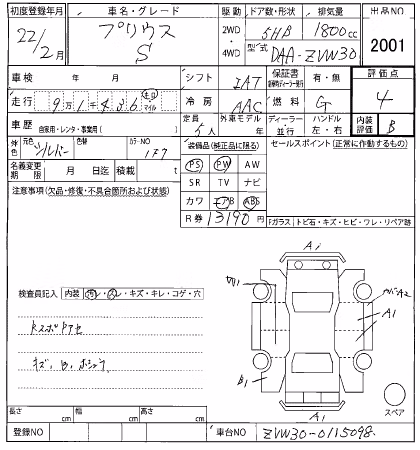 初度登録年月 車名・グレード 駆動 ドア数・形状 排気量 出品NO
22/2月 プリウス S 2WD・4WD 5HB 1800cc 2001
型式 DAA-ZVW30
車検 年 月 シフト IAT 保証書 有・無 評価点
走行 9万1千436 キロ マイル 冷房 AAC 燃料 G 4
車歴 自家用・レンタ・事業用( ) 定員 5人 外車モデル 年 ディーラー・並行 ハンドル 左・右 内装評価 B
外色 元色 シルバー 色替 カラーNO 1F7 装備品(純正品に限る) セールスポイント(正常に作動するもの)
名義変更期限 月 日迄 積載 t PS PW AW
注意事項(欠品・修復・不具合箇所および状態) SR TV ナビ
カワ エアB ABS
R券 13190円 Fガラス・トビ石・キズ・ヒビ・ワレ・リペア跡
A1
検査員記入 内装 汚レ・スレ・キズ・キレ・コゲ・穴
A2
A1
B1
A1
スペア
長さ cm 幅 cm 高さ cm
登録NO 車台NO ZVW30-0115098